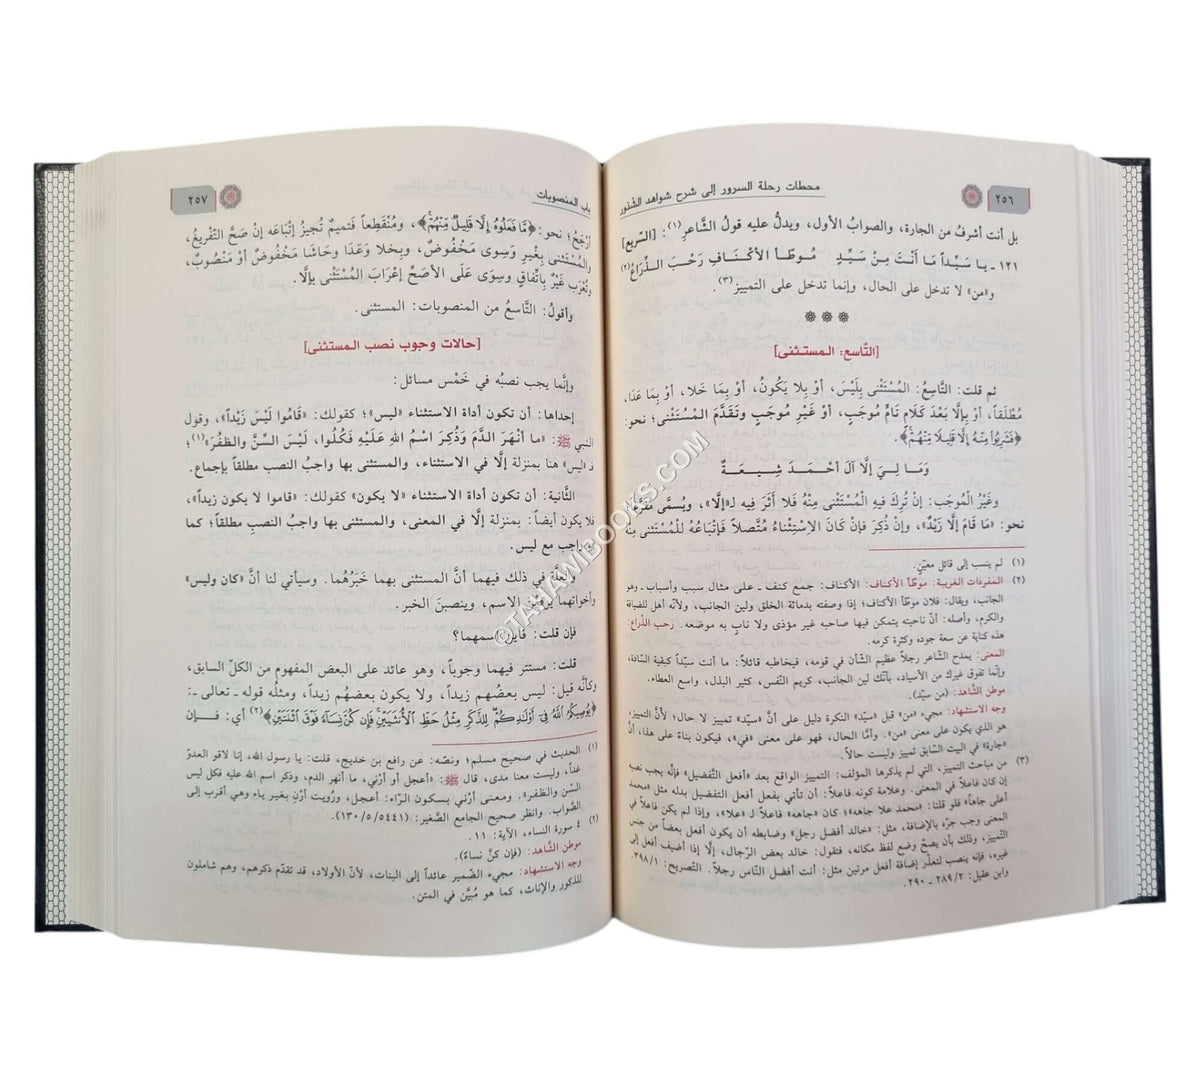 ٢٥٦
محطات رحلة السرور إلى شرح شواهد الشذور
بل أنت أشرفُ من الجارة، والصوابُ الأول، ويدلُّ عليه قولُ الشَّاعرِ(١): [السريع]
١٢١ ـ يـا سَـيِّـداً مـا أنْـتَ مِـنْ سَـيِّـدٍ مُـوطَّـأ الأكْـنـافِ رَحْـبَ الـذِّرَاعْ(٢)
و«من» لا تدخل على الحال، وإنما تدخل على التمييز(٣).
[التَّاسع: المـستـثنى]
ثم قلت: التَّاسِعُ: المُسْتَثْنى بِلَيْسَ، أوْ بِلا يَكُونُ، أوْ بِمَا خَلا، أوْ بِمَا عَدَا،
مُطْلَقاً، أوْ بِإلَّا بَعْدَ كَلامٍ تَامٍّ مُوجَبٍ، أوْ غَيْرِ مُوجَبٍ وتَقَدَّمَ المُسْتَثْنى؛ نحو:
﴿فَشَرِبُوا مِنْهُ إِلَّا قَلِيلًا مِنْهُمْ﴾.
وَمَـا لِـيَ إلَّا آلَ أحْـمَـدَ شِـيـعَـةٌ
وغَيْرُ المُوجَبِ: إنْ تُرِكَ فيهِ المُسْتَثْنى مِنْهُ فَلا أثَرَ فِيهِ لـ«إلَّا»، ويُسمَّى مفرغاً
نحو: «مَا قَامَ إلَّا زَيْدٌ»، وإنْ ذُكِرَ فإنْ كَانَ الاسْتِثْنَاءُ مُتَّصلاً فَإتْبَاعُهُ لِلْمُسْتَثنى مِنهُ
(١) لم ينسب إلى قائل معيَّن.
(٢) المفردات الغريبة: موطَّأ الأكناف: الأكناف: جمع كنف ـ على مثال سبب وأسباب ـ وهو
الجانب، ويقال: فلان موطَّأ الأكناف؛ إذا وصفته بدماثة الخلق ولين الجانب، ولأنه أهل للضيافة
والكرم، وأصله: أنَّ ناحيته يتمكن فيها صاحبه غير مؤذى ولا نابٍ به موضعه. رحب الذِّراع:
هذه كناية عن سعة جوده وكثرة كرمه.
المعنى: يمدح الشَّاعر رجلاً عظيم الشَّأن في قومه، فيخاطبه قائلاً: ما أنت سيِّداً كبقية السَّادة،
وإنَّما تفوق غيرك من الأسياد، بأنَّك لين الجانب، كريم النَّفس، كثير البذل، واسع العطاء.
موطن الشَّاهد: (من سيِّد).
وجه الاستشهاد: مجيء «من» قبل «سيِّد» النكرة دليل على أنَّ «سيِّد» تمييز لا حال؛ لأنَّ التمييز،
هو الذي يكون على معنى «من». وأمَّا الحال، فهو على معنى «في»، فيكون بناءً على هذا، أنَّ
«جارة» في البيت السابق تمييز وليست حالاً.
(٣) من مباحث التمييز، التي لم يذكرها المؤلف: التمييز الواقع بعد «أفعل التَّفضيل» فإنَّه يجب نصبه
إن كان فاعلاً في المعنى. وعلامة كونه فاعلاً: أن تأتي بفعل أفعل التفضيل بدله مثل «محمد
أعلى جاهاً» فلو قلنا: «محمد علا جاهه»؛ كان «جاهه» فاعلاً لـ «علا»، وإذا لم يكن فاعلاً في
المعنى وجب جرُّه بالإضافة، مثل: «خالد أفضل رجل» وضابطه أن يكون أفعل بعضاً من جنس
التَّمييز، وذلك بأن يصحَّ وضع لفظ مكانه، فتقول: خالد بعض الرِّجال، إلَّا إذا أضيف أفعل إلى
غيره، فإنَّه ينصب لتعذُّر إضافة أفعل مرتين مثل: أنت أفضل النَّاس رجلاً. التَّصريح: ٣٩٨/١،
وابن عقيل: ٢٨٩/٢ ـ ٢٩٠.
باب المنصوبات
٢٥٧
أرْجَحُ؛ نحو: ﴿مَا فَعَلُوهُ إِلَّا قَلِيلٌ مِنْهُمْ﴾، ومُنْقَطِعاً فَتميمٌ تُجيزُ إتْبَاعَه إنْ صَحَّ التَّفريغُ،
والمُسْتَثنى بِغَيرِ وَسِوَى مَخْفُوضٌ، وبِخَلا وَعَدَا وحَاشَا مَخْفُوضٌ أوْ مَنْصُوبٌ،
وتُعْرَبُ غَيْرُ بِاتِّفاقٍ وسِوَى عَلَى الأصَحِّ إعْرَابَ المُسْتَثْنى بإلَّا.
وأقولُ: التَّاسعُ من المنصوبات: المستثنى.
[حالات وجوب نصب المـستثنى]
وإنَّما يجب نصبُه في خَمْس مسائل:
إحداها: أن تكون أداة الاستثناء «ليس»؛ كقولك: «قَامُوا لَيْسَ زَيْداً»، وقول
النبي ﷺ: «ما أنْهَرَ الدَّمَ وَذُكِرَ اسْمُ اللهِ عَلَيْهِ فَكُلُوا، لَيْسَ السِّنَّ والظفُرَ»(١)؛
فـ«ليس» هنا بمنزلة إلَّا في الاستثناء، والمستثنى بها واجبُ النصب مطلقاً بإجماع.
الثَّانية: أن تكون أداة الاستثناء «لا يكون» كقولك: «قاموا لا يكون زيداً»،
فلا يكون أيضاً: بمنزلة إلَّا في المعنى، والمستثنى بها واجبُ النصبِ مطلقاً؛ كما
واجب مع ليس.
والعلَّة في ذلك فيهما أنَّ المستثنى بهما خَبَرُهُما. وسيأتي لنا أنَّ «كان وليس»
وأخواتهما يرفعْنَ الاسم، وينصبنَ الخبر.
فإن قلت: فأين اسمهما؟
قلت: مستتر فيهما وجوباً، وهو عائد على البعض المفهوم من الكلِّ السابق،
وكأنَّه قيل: ليس بعضُهم زيداً، ولا يكون بعضهُم زيداً، ومثلُه قوله ـ تعالى ـ:
﴿يُوصِيكُمُ اللَّهُ فِي أَوْلَادِكُمْ لِلذَّكَرِ مِثْلُ حَظِّ الْأُنْثَيَيْنِ فَإِنْ كُنَّ نِسَاءً فَوْقَ اثْنَتَيْنِ﴾(٢) أي: فــإن
(١) الحديث في صحيح مسلم؛ ونصّه: عن رافع بن خديج، قلت: يا رسول الله، إنا لاقو العدوّ
غداً، وليست معنا مدى، قال ﷺ: «أعجل أو أرْني، ما أنهر الدم، وذكر اسم الله عليه فكل ليس
السّن والظفر». ومعنى أرْني بسكون الرَّاء: أعجل، ورُويت أرْنِ بغير ياء وهي أقرب إلى
الصَّواب. وانظر صحيح الجامع الصَّغير: (١٣٠/٥/٥٤٤١).
(٢) ٤ سورة النساء، الآية: ١١.
موطن الشَّاهد: (فإن كنَّ نساءً).
وجه الاستشهاد: مجيء الضَّمير عائداً إلى البنات، لأنَّ الأولاد، قد تقدَّم ذكرهم، وهم شاملون
للذكور والإناث، كما هو مُبيَّن في المتن.
©TAHAWIBOOKS.COM